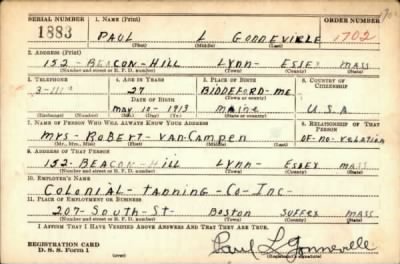 SERIAL NUMBER 1. NAME (Print) ORDER NUMBER
1883 PAUL L GONNEVILLE 1702
(First) (Middle) (Last)
2. ADDRESS (Print)
152 - BEACON - HILL LYNN - ESSEX MASS
(Number and street or R. F. D. number) (Town) (County) (State)
3. TELEPHONE 4. AGE IN YEARS 5. PLACE OF BIRTH 6. COUNTRY OF CITIZENSHIP
27 BIDDEFORD - ME
DATE OF BIRTH (Town or county)
MAY 10 - 1913 MAINE U.S.A
(Exchange) (Number) (Mo.) (Day) (Yr.) (State or country)
7. NAME OF PERSON WHO WILL ALWAYS KNOW YOUR ADDRESS 8. RELATIONSHIP OF THAT PERSON
MRS - ROBERT - VAN CAMPEN OF - NO - RELATION
(Mr., Mrs., Miss) (First) (Middle) (Last)
9. ADDRESS OF THAT PERSON
152 - BEACON - HILL LYNN - ESSEX MASS
(Number and street or R. F. D. number) (Town) (County) (State)
10. EMPLOYER'S NAME
COLONIAL - TANNING - CO - INC -
11. PLACE OF EMPLOYMENT OR BUSINESS
207 - SOUTH - ST - BOSTON SUFFOLK MASS
(Number and street or R. F. D. number) (Town) (County) (State)
I AFFIRM THAT I HAVE VERIFIED ABOVE ANSWERS AND THAT THEY ARE TRUE.
REGISTRATION CARD
D. S. S. Form 1 (over) Paul L Gonneville
(Registrant's signature)